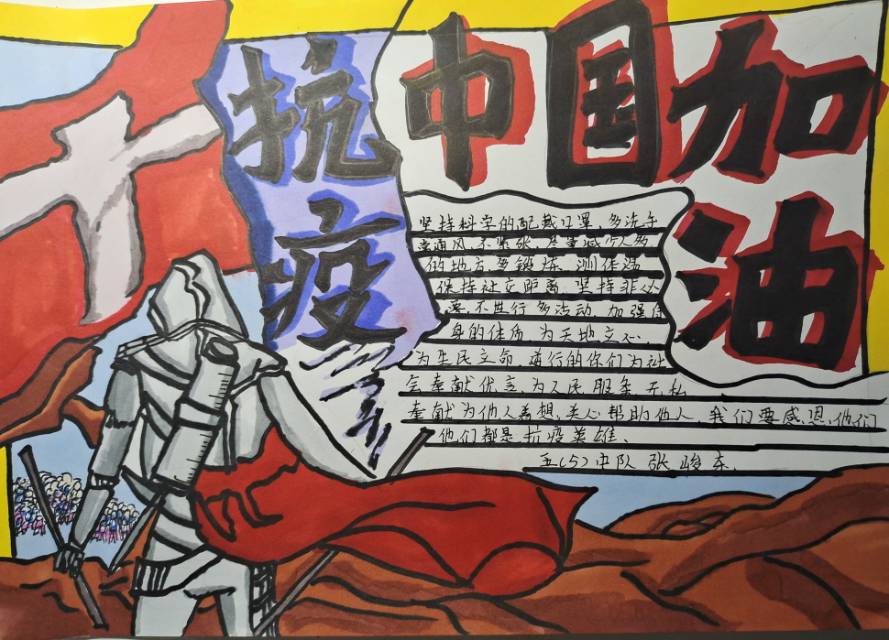 抗疫
中国加油
坚持科学的配戴口罩，多洗手
通风，不聚张，尽量减少人多
的地方，多锻炼，测体温
保持社交距离，坚持非必
要，不进行多活动，加强自
身的体质，为天地立心
为生民立命，逆行的你们为社
会奉献优立，为人民服务，无私
奉献为他人着想，关心帮助他人，我们要感恩，他们
他们都是抗疫英雄、
五（5）中队 张峻东、